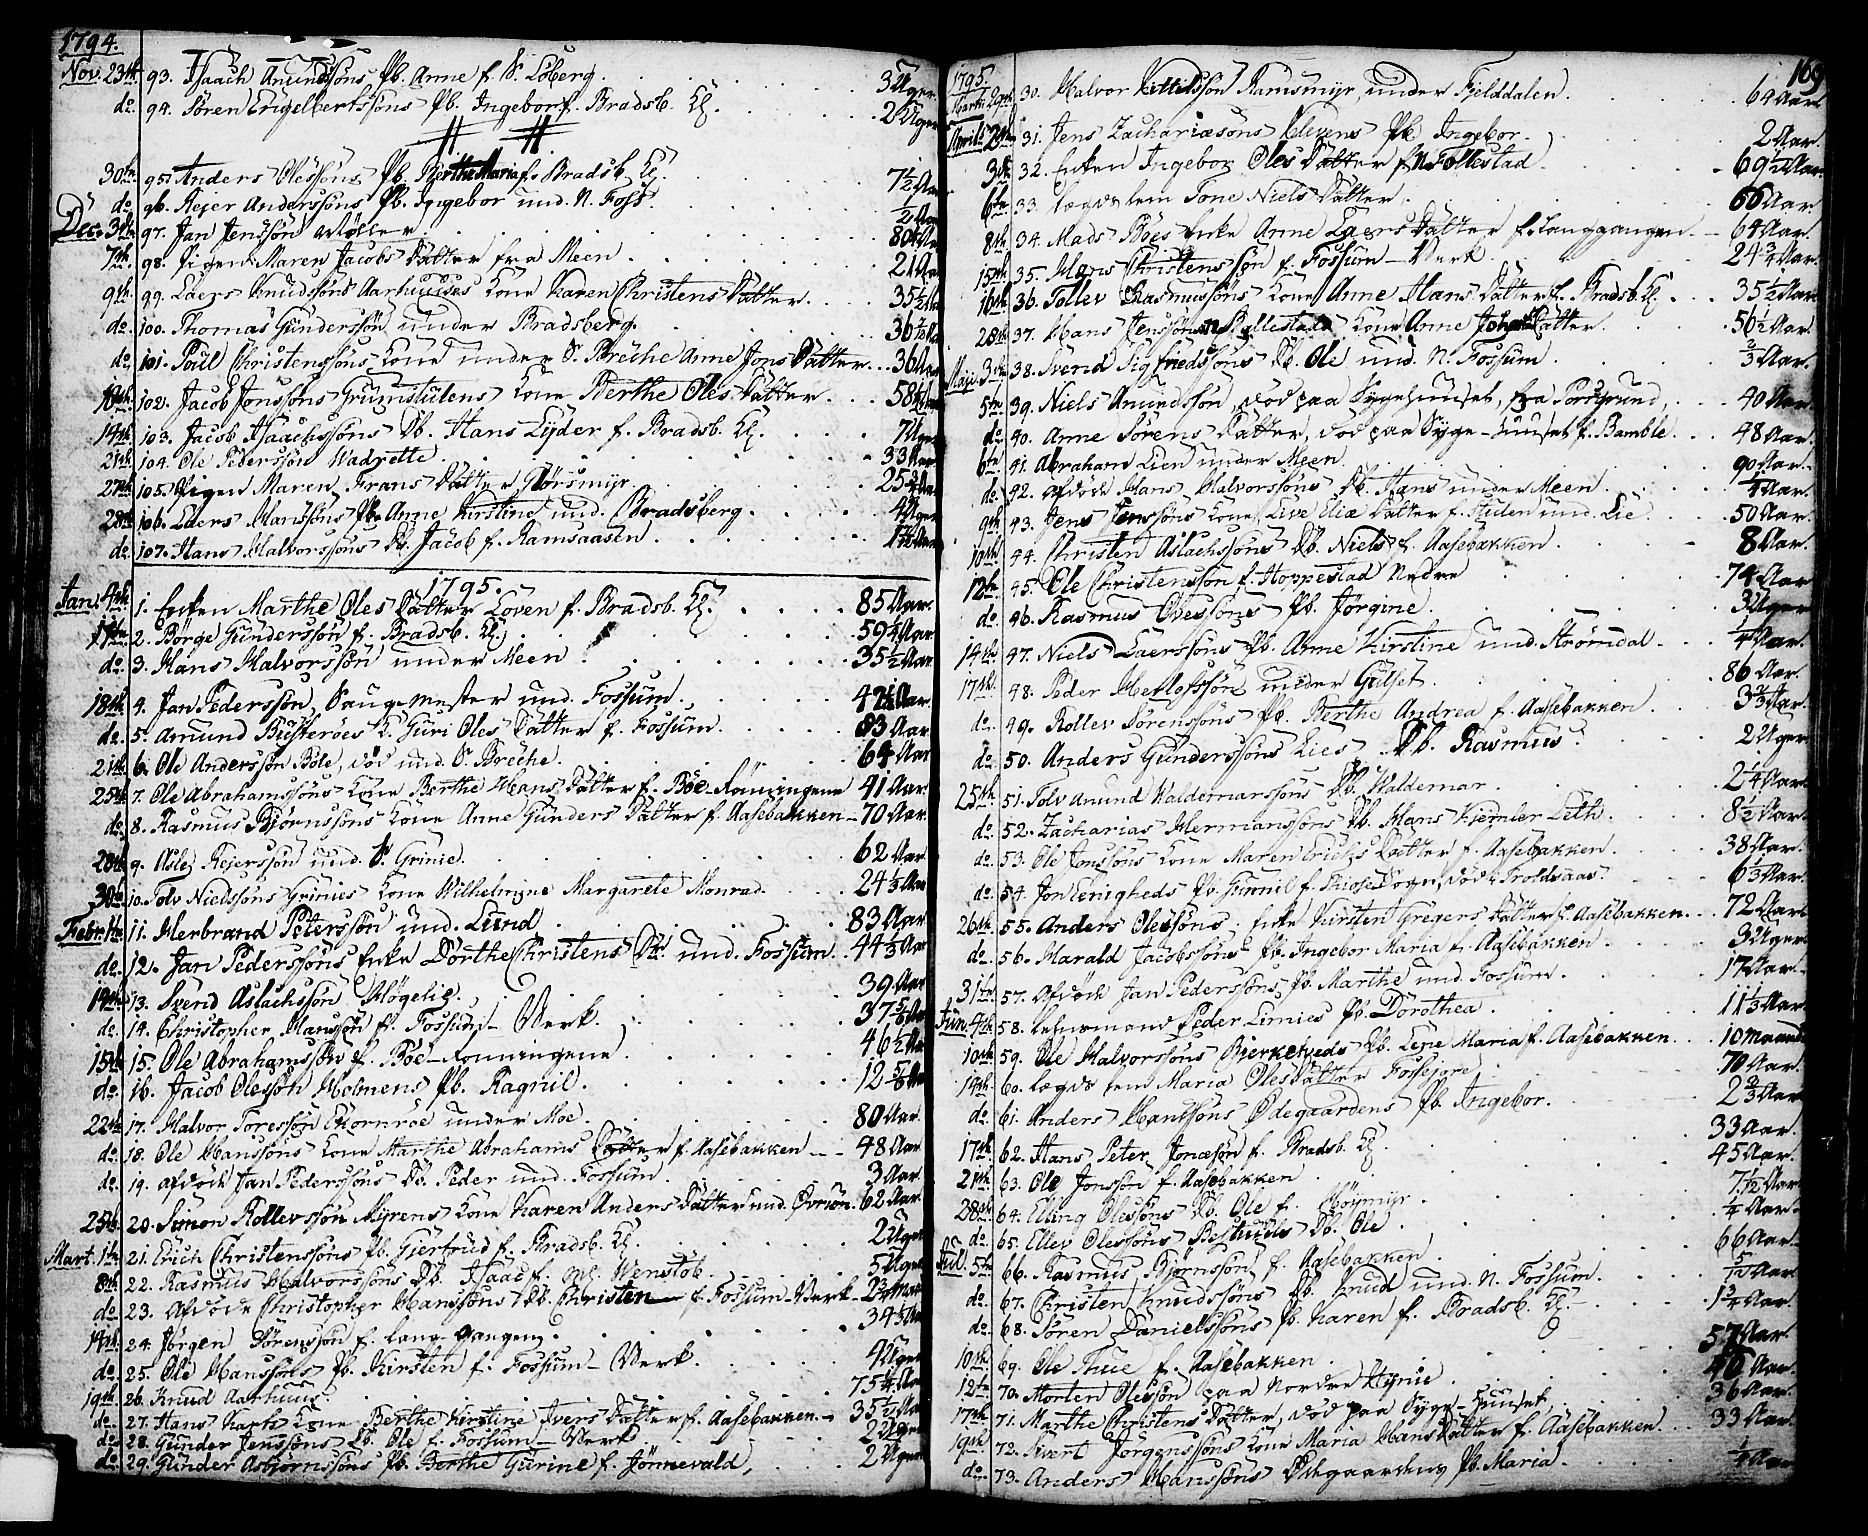 1794.
Nov. 23de 93. Isaach Amundssøns Pb. Anne f. S. Løberg. 3 Uger
do 94. Søren Engelbertssøns Pb. Ingebor f. Bradsb. Kl. 2 Uger
30te 95. Anders Olessøns Pb. Berthe Maria f. Bradsb. Kl. 7½ Aar
do 96. Rejer Anderssøns Pb. Ingebor und. N. Foss ½ Aar
Dec. 3die 97. Jan Jenssøn Møller 80 Aar
7de 98. Pigen Maren Jacobs Datter fra Meen 21 Aar
9de 99. Laers Knudssøns Aarhuuses Kone Karen Christens Datter 35½ Aar
do. 100. Thomas Gunderssøn under Bradsberg. 36½ Aar
do 101. Poul Christenssøns Kone under S. Breche Anne Jons Datter 36 Aar
102. Jacob Jonssøns Grumstulens Kone Berthe Oles Datter 58 Aar
14de 103. Jacob Isaachssøns Db. Hans Lyder f. Bradsb. Kl. 7 Uger
21de 104. Ole Pederssøn Wadrette 33 Aar
27de 105. Pigen Maren Frans Datter Glørsmyr. 25 Aar
28de 106. Laers Hanssøns Pb. Anne Kirstine und. Bradsberg 4 Uger
do. 107. Hans Halvorssøns Db. Jacob f. Ramsaasen
1795.
Jan. 4de 1. Enken Marthe Oles Datter Loven f. Bradsb. Kl. 85 Aar.
11te 2. Børge Gunderssøn f. Bradsb. Kl. 59¼ Aar
do 3. Hans Halvorssøn under Meen 35½ Aar
18de 4. Jan Pederssøn, Saugmester und. Fossum. Aar
do. 5. Amund Busterøes K. Guri Oles Datter f. Fossum. 83 Aar
21de 6. Ole Anderssøn Bøle, død und. S. Breche. 64 Aar
25de 7. Ole Abrahamssøns Kone Berthe Hans Datter f. Bøe-Ronningene 41 Aar
do. 8. Rasmus Bjørnssøns Kone Anne Gunders Datter f. Aasebakken 70 Aar
28de 9. Aslej Rejerssøn und. S. Grinie. 62 Aar
30te 10. Tolv Nielssøns Grinies Kone Wilhelmine Margarete Monrad 24⅓ Aar
Febr. 1te 11. Herbrand Peterssøn und. Lund. 83 Aar
do 12. Jan Pederssøns Enke Dorthe Christens Dr. und. Fossum 44⅓ Aar
13. Svend Aslachssøn Høgelie. 39 Aar
do. 14. Christopher Hanssøn f. Fossum-Verk. 37 Aar
15de 15. Ole Abrahamssøn f. Bøe-Ronningene 46½ Aar
do 16. Jacob Olessøn Holmens Pb. Ragnil. 12 Aar
22de 17. Halvor Toressøn Ekornrøe under Moe 80 Aar
do. 18. Ole Hanssøns Kone Marthe Abrahams Datter f. Aasebakken 48 Aar
do. 19. afdøde Jan Pederssøns Db. Peder und. Fossum. 3 Aar
25de 20. Simon Rollevssøn Myrens Kone Karen Anders Datter und. 62 Aar
Mart. 1te 21. Erich Christenssøns Pb. Gjertrud f. Bradsb. Kl. 2 Uger
8de 22. Rasmus Halvorssøns Db. Isaac f. Wenstøb. 5 Uger
do 23. Afdøde Christopher Hanssøns Db. Christen f. Fossum-Verk
24. Jørgen Sørenssøn f. Lang-gangen. 34⅓ Aar
do 25. Ole Hanssøns Pb. Kirsten f. Fossum-Verk. 4 Uger
19de 26. Knud Aarhuus. 75¼ Aar
do. 27. Hans Kone Berthe Kirstine Ivers Datter f. Aasebakken 35½ Aar
do. 28. Gunder Jenssøns Db. Ole f. Fossum-Verk 2 Uger
do. 29. Gunder Asbjørnssøns Pb. Berthe Gurine f. Jønnevald, 2 Uger
169
1795.
Martii 29de 30. Halvor Kittilssøn Ramsmyr, under Fjelddalen. 64 Aar
April 2den 31. Jens Zachariæsøns Klevens Pb. Ingebor. 2 Aar.
3die 32. Enken Ingebor Oles Datter f. N. Follestad 69½ Aar.
6te 33. Lægdslem Tone Niels Datter 66 Aar.
8de 34. Mads Bøes Enke Anne Laers Datter f. Langgangen 64 Aar.
15de 35. Hans Christenssøn f. Fossum-Verk 24¾ Aar.
16de 36. Tollev Rasmussøns Kone Anne Hans Datter f. Bradsb. Kl. 35½ Aar.
28de 37. Hans Jenssøns Kone Anne Datter. 56½ Aar.
Maji. 3die 38. Svend Sigfriedssøns Db. Ole und. N. Fossum ⅔ Aar.
5te 39. Niels Amundssøn, død paa Sygehuuset, fra Porsgrund, 40 Aar.
do. 40. Anne Sørens Datter, død paa Syge-Huuset f. Bamble. 48 Aar.
6te 41. Abraham Lien under Meen. 90 Aar.
do. 42. Afdøde Hans Halvorssøns Db. Hans under Meen ¼ Aar.
9de 43. Jens Jenssøns Kone Live Eliæ Datter f. Hulen und. Lie. 50 Aar.
10de 44. Christen Aslachssøns Db. Niels f. Aasebakken 8 Aar.
12te 45. Ole Christenssøn f. Hoppestad Nedre 74 Aar.
do 46. Rasmus Ovessøns Pb. Jørgine. 3 Uger
14de 47. Niels Laerssøns Pb. Anne Kirstine und. Strømdal ¼ Aar.
17de 48. Peder Herlofssøn under Gulset. 86 Aar.
do. 49. Rollev Sørenssøns Pb. Berthe Andrea f. Aasebakken 3¾ Aar.
do 50. Anders Gunderssøns Lies Db. Rasmus. 2 Uger
25de 51. Tolv Amund Waldemarssøns Db. Waldemar. 2¼ Aar.
do. 52. Zacharias Hermanssøns Db. Hans Kiemler Leth. 8½ Aar.
do. 53. Ole Jonssøns Kone Maren Erichs Datter f. Aasebakken. 38 Aar.
do. 54. Jon Enigheds Pb. Gunnil f. Sogn, død i Troldsaas 6⅓ Aar.
26de 55. Anders Olessøns Enke Kirsten Gregers Datter f. Aasebakken 72 Aar
do. 56. Harald Jacobssøns Pb. Ingebor Maria f. Aasebakken 3 Uger.
31te 57. Afdøde Jan Pederssøns Pb. Marthe und. Fossum. 17 Aar.
Jun. 4de 58. Lehnsmand Peder Limies Pb. Dorothea. 11⅓ Aar.
10de 59. Ole Halvorssøns Bjerketvedts Pb. Lene Maria f. Aasebakken 10 maaned
14de 60. Lægdslem Maria Oles Datter Fossejore 70 Aar.
do. 61. Anders Hanssøns Ødegaardens Pb. Ingebor. 2⅔ Aar
17de 62. Hans Peter Jonæsøn f. Bradsb. Kl. 33 Aar.
21de 63. Ole Jonssøn f. Aasebakken 45 Aar.
28de 64. Elling Olessøns Db. Ole f. 7½ Aar.
do. 65. Ellev Olessøns Db. Ole. ¼ Aar.
Jul. 5te 66. Rasmus Bjørnssøn f. Aasebakken 66 Aar.
do. 67. Christen Knudssøns Db. Knud und. N. Fossum.
do. 68. Søren Danielssøns Pb. Karen f. Bradsb. Kl. 1¾ Aar.
10de 69. Ole Thue f. Aasebakken 57 Aar.
12te 70. Morten Olessøn paa Nordre Hynie 40 Aar.
17de 71. Marthe Christens Datter, død paa Syge-Huuset, 36 Aar.
19de 72. Sivert Jørgenssøns Kone Maria Hans Datter f. Aasebakken. 33 Aar.
do. 73. Anders Hanssøns Ødegaardens Pb. Maria. ¼ Aar